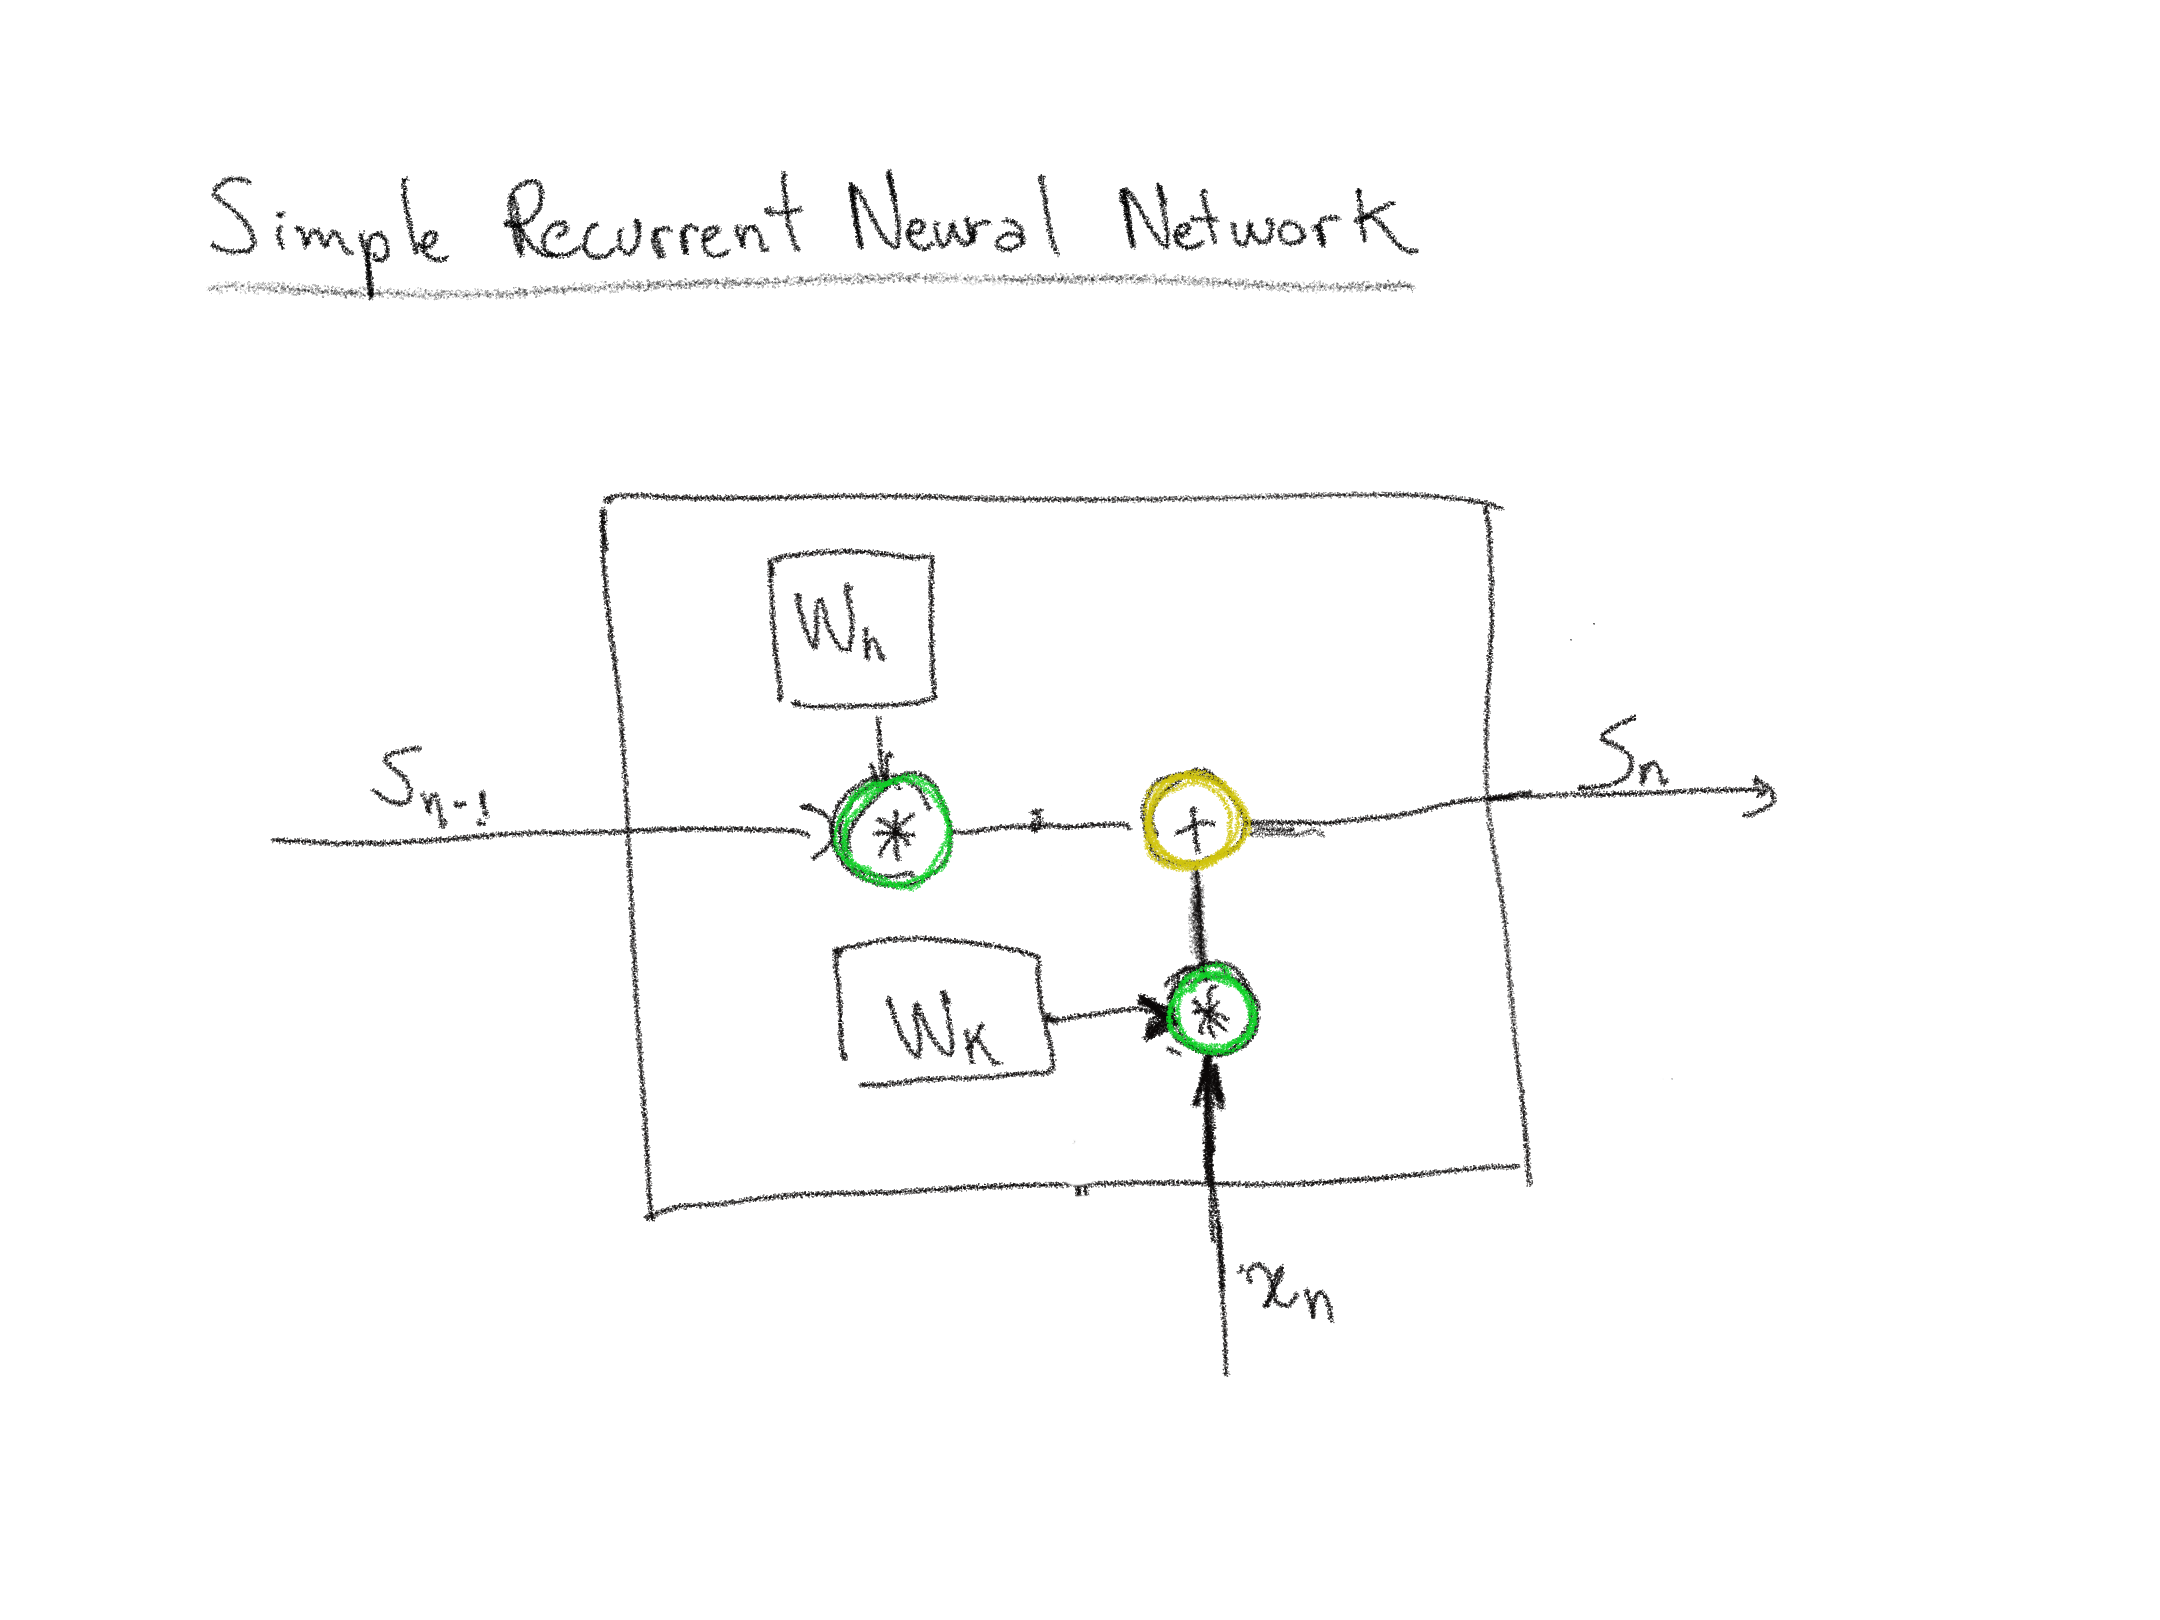 Simple Recurrent Neural Network
Wn
Sn-1
*
+
Sn
WK
*
xn